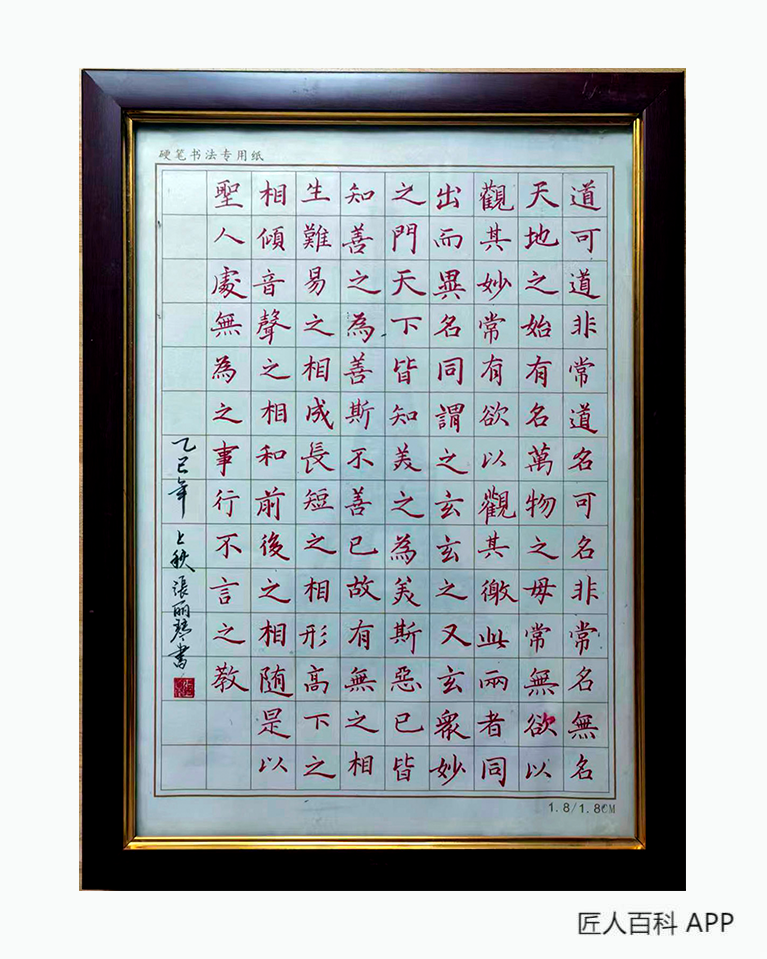 硬笔书法专用纸
道可道非常道名可名非常名無名
天地之始有名萬物之母常無欲以
觀其妙常有欲以觀其徼此兩者同
出而異名同謂之玄玄之又玄衆妙
之門天下皆知美之為美斯惡已皆
知善之為善斯不善已故有無之相
生難易之相成長短之相形高下之
相傾音聲之相和前後之相随是以
聖人處無為之事行不言之教
乙巳年上秋張丽琴書
1.8/1.8CM
匠人百科 APP